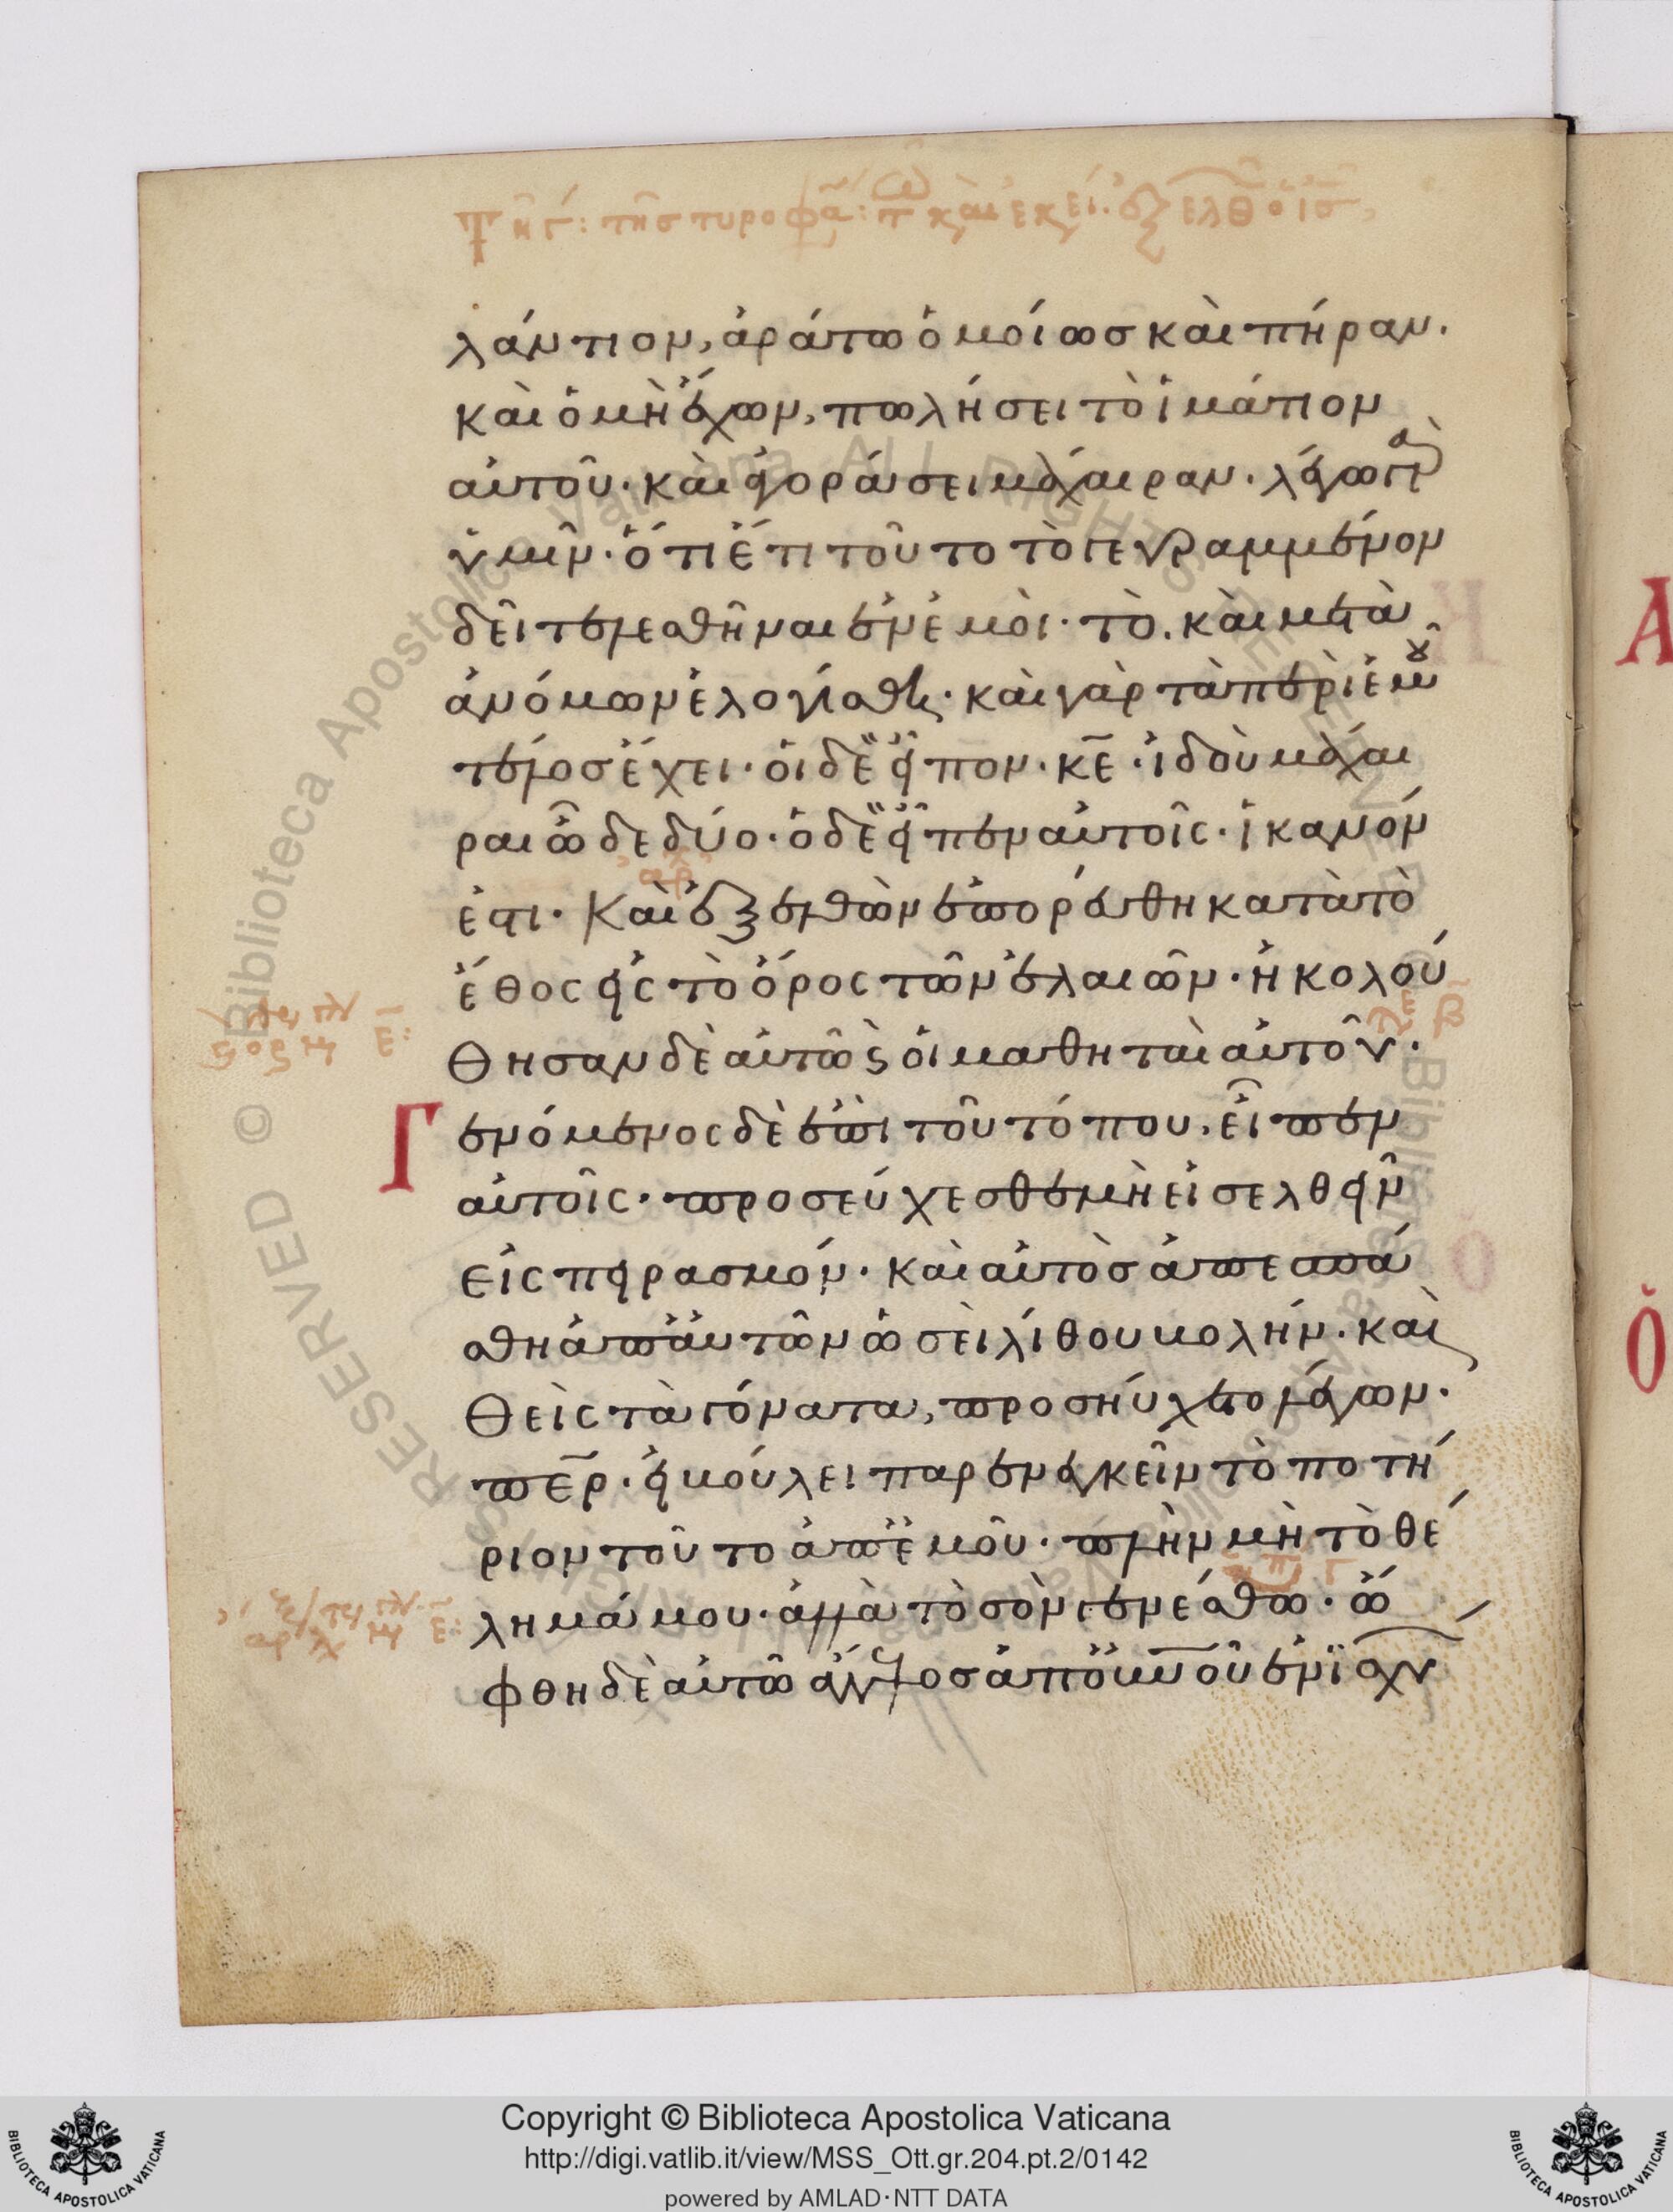 λάντιον, ἀράτω ὁμοίωσ καὶ πήραν.
καὶ ὁ μὴ ἔχων, πωλήσει τὸ ἱμάτιον
αὐτοῦ· καὶ ἀγοράσει μάχαιραν. λέγω γὰρ
ὑμῖν· ὅτι ἔτι τοῦτο τὸ γεγραμμένον
δεῖ τελεσθῆναι ἐν ἐμοὶ· τὸ. καὶ μετὰ
ἀνόμων ἐλογίσθη· καὶ γὰρ τὰ περὶ ἐμοῦ
τέλοσ ἔχει· οἱ δὲ εἶπον· κε̅ · ἰδοὺ μάχαι
ραι ὧδε δύο· ὁ δὲ εἶπεν αὐτοῖς· ἱκανόν
ἐστι· Καὶ ἐξελθὼν ἐπορεύθη κατὰ τὸ
ἔθος εἰς τὸ ὄρος τῶν ἐλαιῶν· ἠκολού
θησαν δὲ αὐτῶ ϗ οἱ μαθηταὶ αὐτοῦ·
Γενόμενος δὲ ἐπὶ τοῦ τόπου, εἶπεν
αὐτοῖς· προσεύχεσθε μὴ εἰσελθεῖν
εἰς πειρασμόν· καὶ αὐτὸσ ἀπεσπά
σθη ἀπ' αὐτῶν ὡσεὶ λίθου βολήν· καὶ
θεὶς τὰ γόνατα, προσηύχετο λέγων·
πε̅ρ · εἰ βούλει παρενεγκεῖν τὸ ποτή
ριον τοῦτο ἀπ' ἐμοῦ· πλὴν μὴ τὸ θέ
λημά μου· ἀλλὰ τὸ σὸν γενέσθω· ὤ
φθη δὲ αὐτῶ ἄγγελοσ ἀπ' οὐνου ἐνισχύ
Copyright © Biblioteca Apostolica Vaticana
http://digi.vatlib.it/view/MSS_Ott.gr.204.pt.2/0142
powered by AMLAD·NTT DATA
BIBLIOTECA APOSTOLICA VATICANA
BIBLIOTECA APOSTOLICA VATICANA